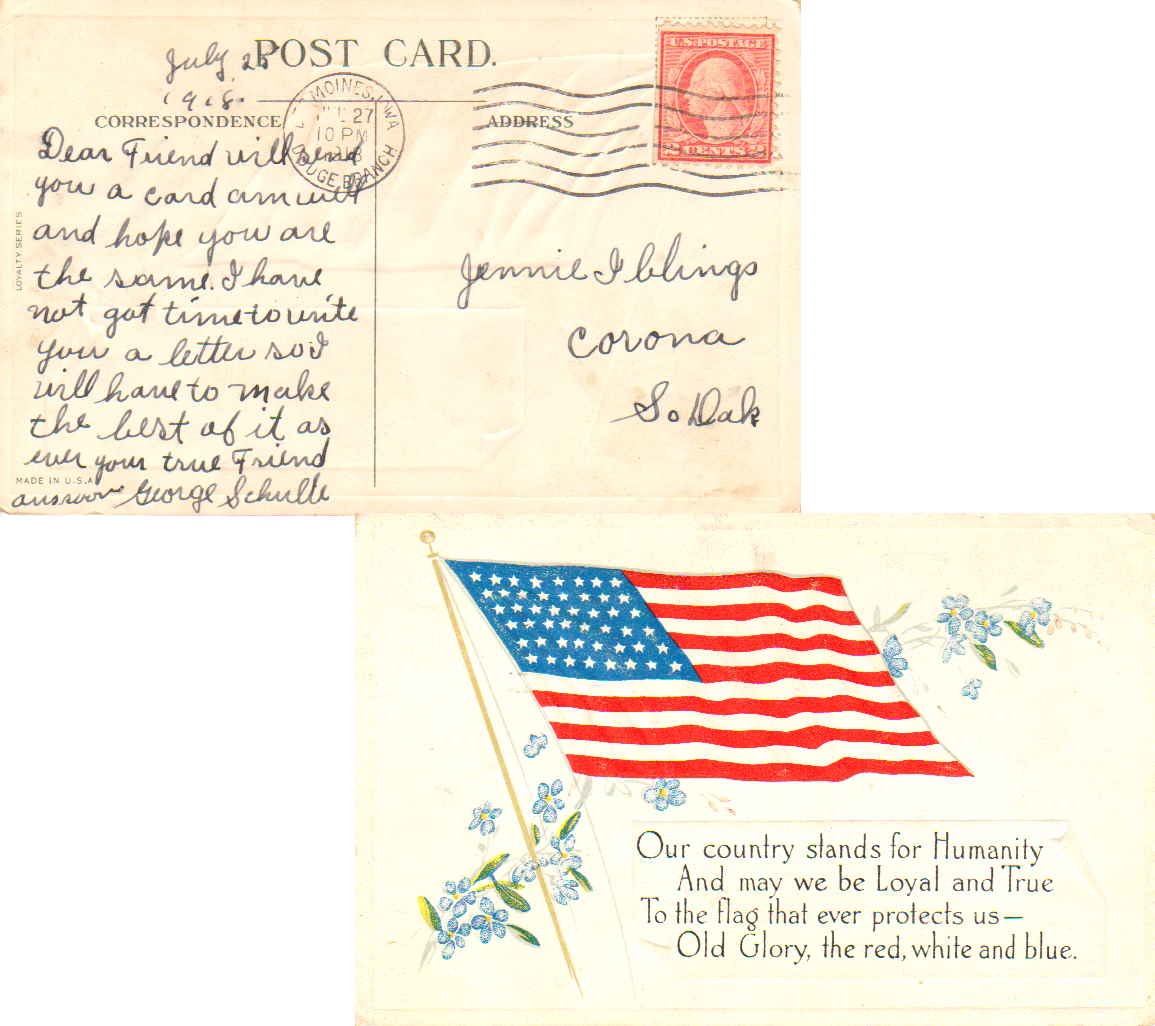 POST CARD.
July 25
1918.
CORRESPONDENCE
ADDRESS
U.S. POSTAGE
2 CENTS 2
MOINES, IOWA
27
10 PM
1918
DODGE BRANCH
Dear Friend will send
you a card am well
and hope you are
the same. I have
not got time to write
you a letter so I
will have to make
the best of it as
ever your true Friend
ans soon George Schulte
Jennie Iblings
Corona
So Dak
LOYALTY SERIES
MADE IN U.S.A
Our country stands for Humanity
And may we be Loyal and True
To the flag that ever protects us—
Old Glory, the red, white and blue.